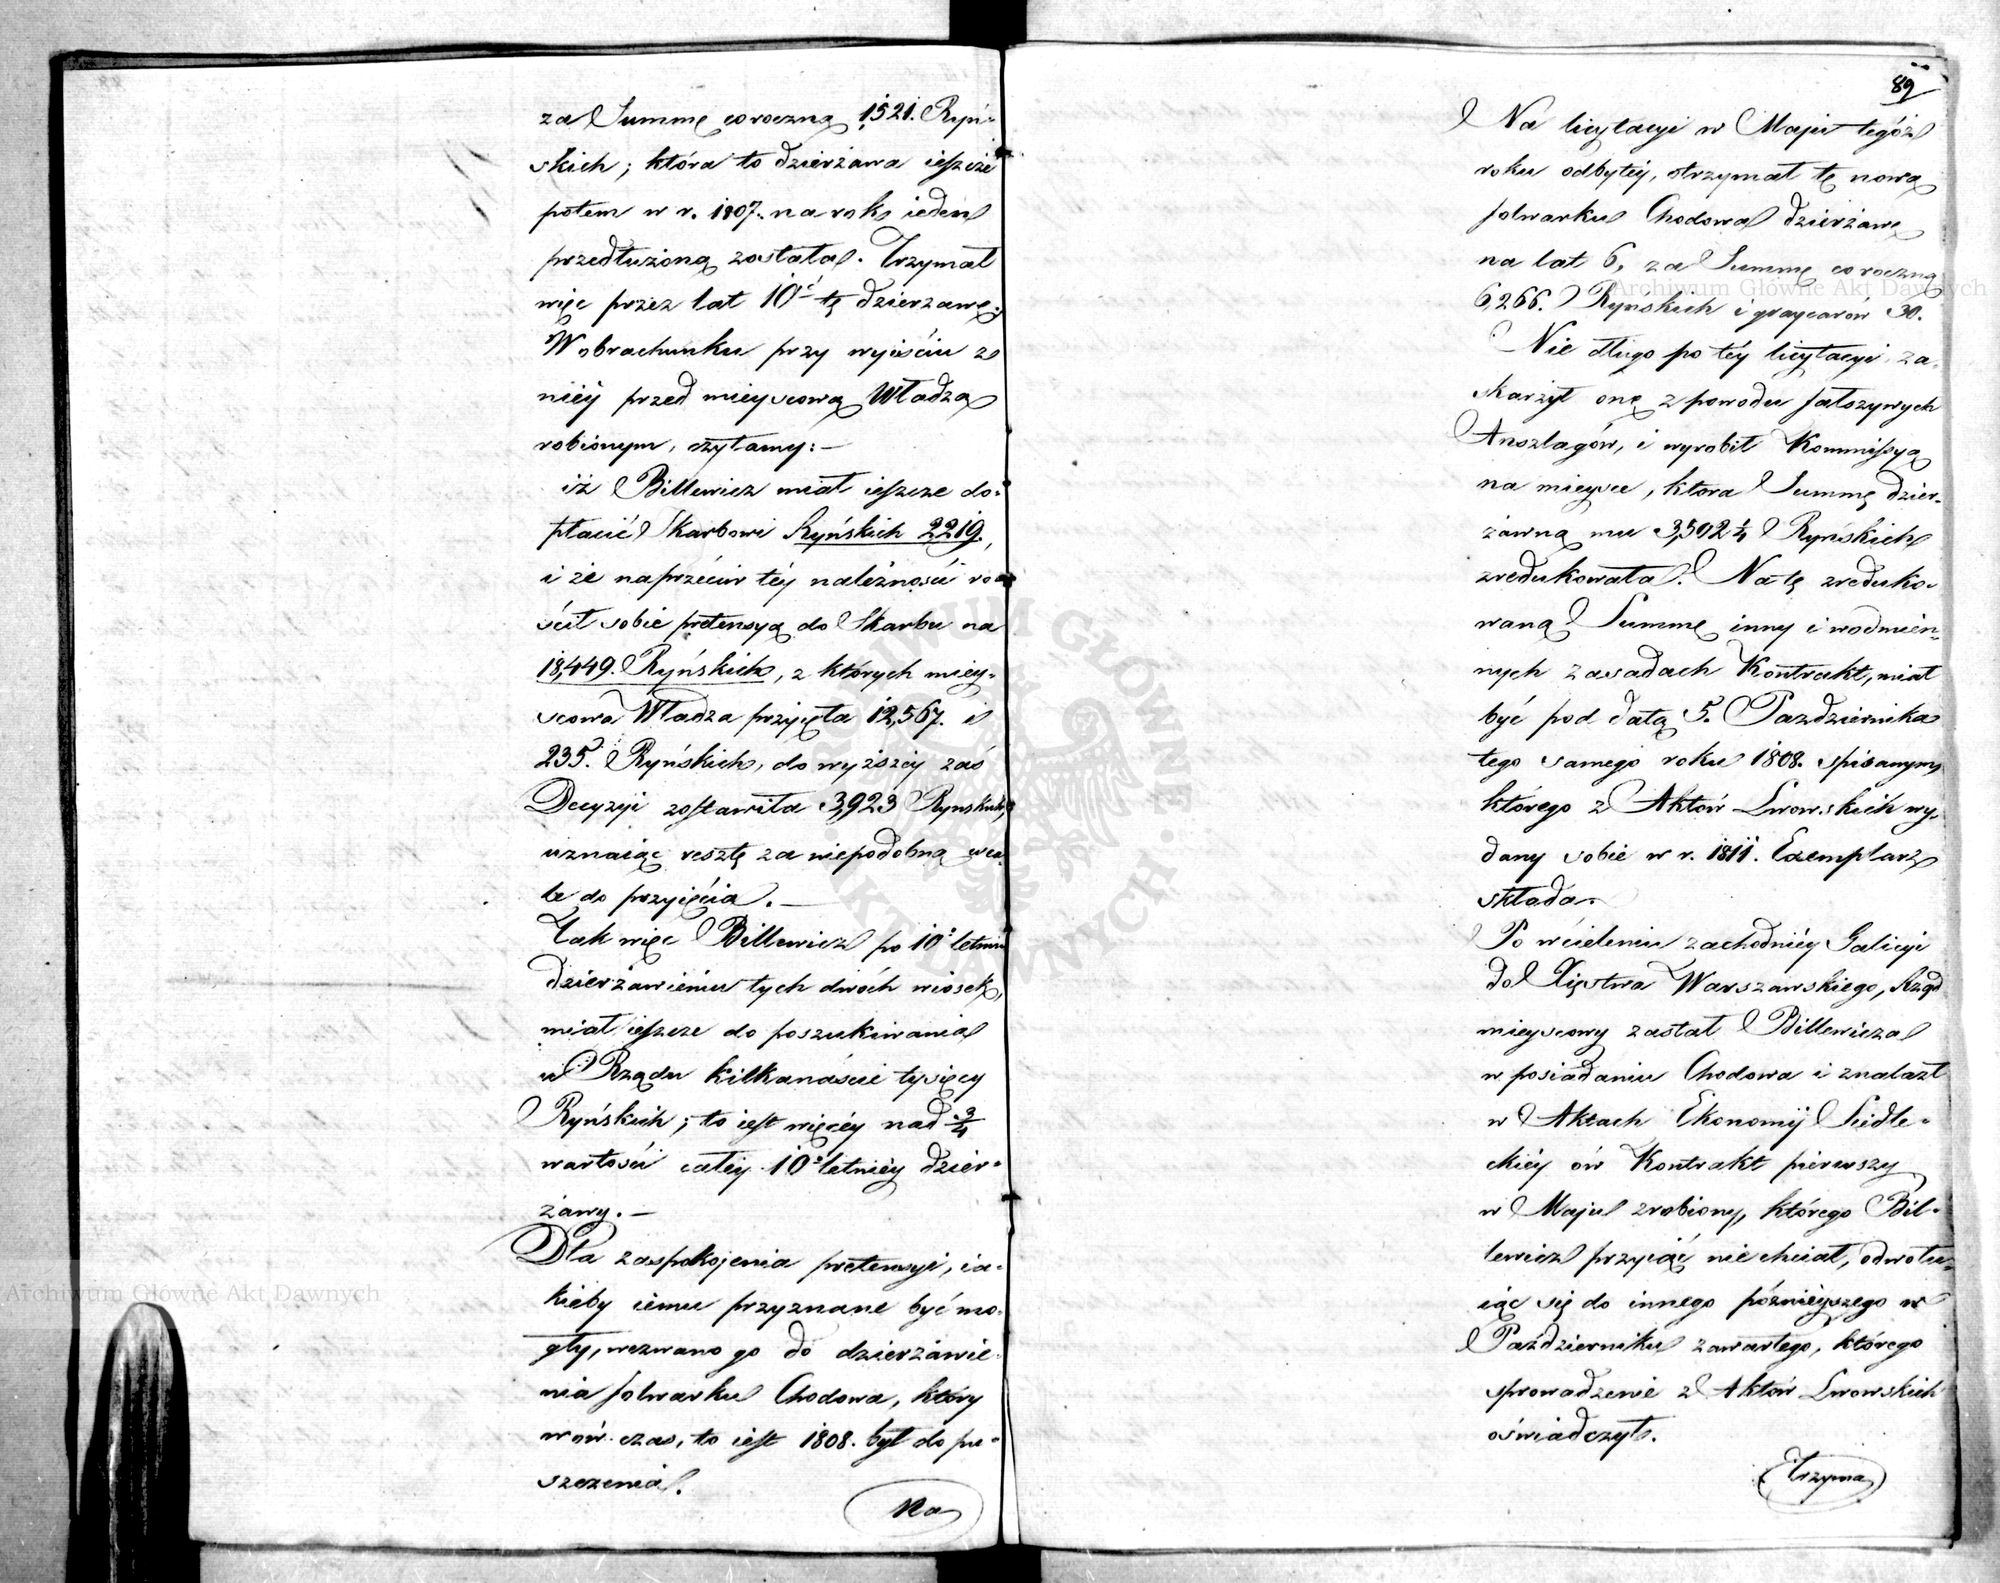 za Summę coroczną 1521. Ryń-
skich; która to dzierżawa ieszcze
potem w r. 1807. na rok ieden
przedłużoną została. Trzymał
więc przez lat 10ć tę dzierzawę.
W obrachunku przy wyiściu z
niéy przed mieyscową Władzą
robionym, czytamy: —
iż Billewicz miał ieszcze do-
płacić Skarbowi Ryńskich 2219.,
i że naprzeciw téy należności ro-
ścił sobie pretensyą do Skarbu na
18,449. Ryńskich, z których miey-
scowa Władza przyięła 12,567. i
235. Ryńskich, do wyższéy zaś
Decyzyi zostawiła 3,923 Ryńskich,
uznaiąc resztę za niepodobną wca-
le do przyięcia. —
Tak więc Billewicz po 10letnim
dzierżawieniu tych dwóch wiosek,
miał ieszcze do poszukiwania
u Rządu kilkanaście tysięcy
Ryńskich; to iest więcéy nad 3/4
wartości całéy 10letniéy dzier-
żawy. —
Dla zaspokojenia pretensyi, ia-
kieby iemu przyznane być mo-
gły, wezwano go do dzierżawie-
nia folwarku Chodowa, który
wówczas, to iest 1808. był do pu-
szczenia.
Na
89
Na licytacyi w Maju tegóż
roku odbytéy, otrzymał tę nową
folwarku Chodowa dzierżawę
na lat 6, za Summę coroczną
6,266. Ryńskich i graycarów 30.
Nie długo po téy licytacyi za-
skarżył onę z powodu fałszywych
Anszlagów, i wyrobił Kommissyą
na mieysce, ktora Summę dzier-
żawną mu 3,502 1/4 Ryńskich
zredukowała. Na tę zreduko-
waną Summę inny i w odmien-
nych zasadach Kontrakt, miał
być pod datą 5. Pazdziernika
tego samego roku 1808. spisanym,
którego z Aktów Lwowskich wy-
dany sobie w r. 1811. Exemplarz
składa.
Po wcieleniu zachodniéy Galicyi
do Xięstwa Warszawskiego, Rząd
mieyscowy zastał Billewicza
w posiadaniu Chodowa i znalazł
w Aktach Ekonomij Siedle-
ckiéy ów Kontrakt pierwszy
w Maju zrobiony, którego Bil-
lewicz przyiąć nie chciał, odwołu-
iąc się do innego późnieyszego w
Październiku zawartego, którego
sprowadzenie z Aktów Lwowskich
oświadczył.
Trzyma
Archiwum Główne Akt Dawnych
Archiwum Główne Akt Dawnych
ARCHIWUM GŁÓWNE AKT DAWNYCH